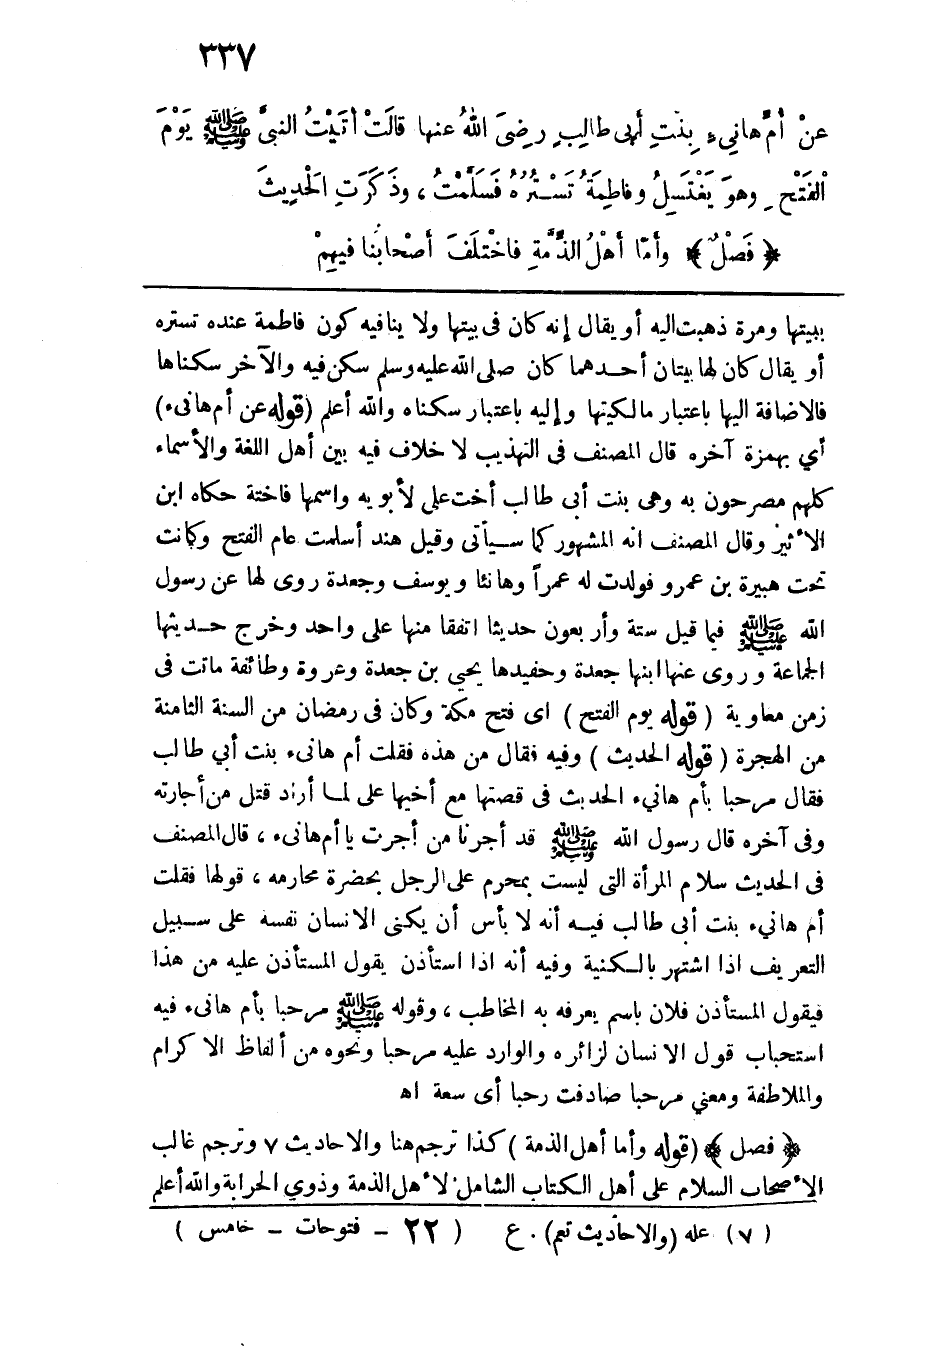 ٣٣٧
عنْ أُمِّ هانِىءٍ بِنْتِ أَبى طالِبٍ رضِىَ اللهُ عنها قالَتْ أتَيْتُ النبىَّ ﷺ يَوْمَ
الفَتْحِ وهوَ يَغْتَسِلُ وفاطِمَةُ تَسْتُرُهُ فَسَلَّمْتُ ، وذَكَرَتِ الحَدِيثَ
﴿ فَصْلٌ ﴾ وأمّا أهْلُ الذِّمَّةِ فاخْتلَفَ أصْحابُنا فيهِمْ
ببيتها ومرة ذهبت اليه أو يقال إنه كان فى بيتها ولا ينافيه كون فاطمة عنده تستره
أو يقال كان لها بيتان أحدهما كان صلى الله عليه وسلم سكن فيه والآخر سكناها
فالاضافة اليها باعتبار مالكيتها وإليه باعتبار سكناه والله أعلم (قوله عن أم هانىء)
أي بهمزة آخره قال المصنف فى التهذيب لا خلاف فيه بين أهل اللغة والأسماء
كلهم مصرحون به وهى بنت أبى طالب أخت على لأبويه واسمها فاختة حكاه ابن
الأثير وقال المصنف انه المشهور كما سيأتى وقيل هند أسلمت عام الفتح وكانت
تحت هبيرة بن عمرو فولدت له عمراً وهانئا ويوسف وجعدة روى لها عن رسول
الله ﷺ فيما قيل ستة وأربعون حديثا اتفقا منها على واحد وخرج حديثها
الجماعة وروى عنها ابنها جعدة وحفيدها يحيي بن جعدة وعروة وطائفة ماتت فى
زمن معاوية ( قوله يوم الفتح ) اى فتح مكة وكان فى رمضان من السنة الثامنة
من الهجرة ( قوله الحديث ) وفيه فقال من هذه فقلت أم هانىء بنت أبي طالب
فقال مرحبا بأم هانيء الحديث فى قصتها مع أخيها على لما أراد قتل من أجارته
وفى آخره قال رسول الله ﷺ قد أجرنا من أجرت يا أم هانىء ، قال المصنف
فى الحديث سلام المرأة التى ليست بمحرم على الرجل بحضرة محارمه ، قولها فقلت
أم هانيء بنت أبى طالب فيه أنه لا بأس أن يكنى الانسان نفسه على سبيل
التعريف اذا اشتهر بالكنية وفيه أنه اذا استأذن يقول المستأذن عليه من هذا
فيقول المستأذن فلان باسم يعرفه به المخاطب ، وقوله ﷺ مرحبا بأم هانىء فيه
استحباب قول الانسان لزائره والوارد عليه مرحبا ونحوه من ألفاظ الاكرام
والملاطفة ومعني مرحبا صادفت رحبا أى سعة اه
﴿ فصل ﴾ ( قوله وأما أهل الذمة ) كذا ترجم هنا والاحاديث ٧ وترجم غالب
الأصحاب السلام على أهل الكتاب الشامل لأهل الذمة وذوي الحرابة والله أعلم
(٧) عله (والاحاديث تعم) . ع ( ٢٢ – فتوحات – خامس )